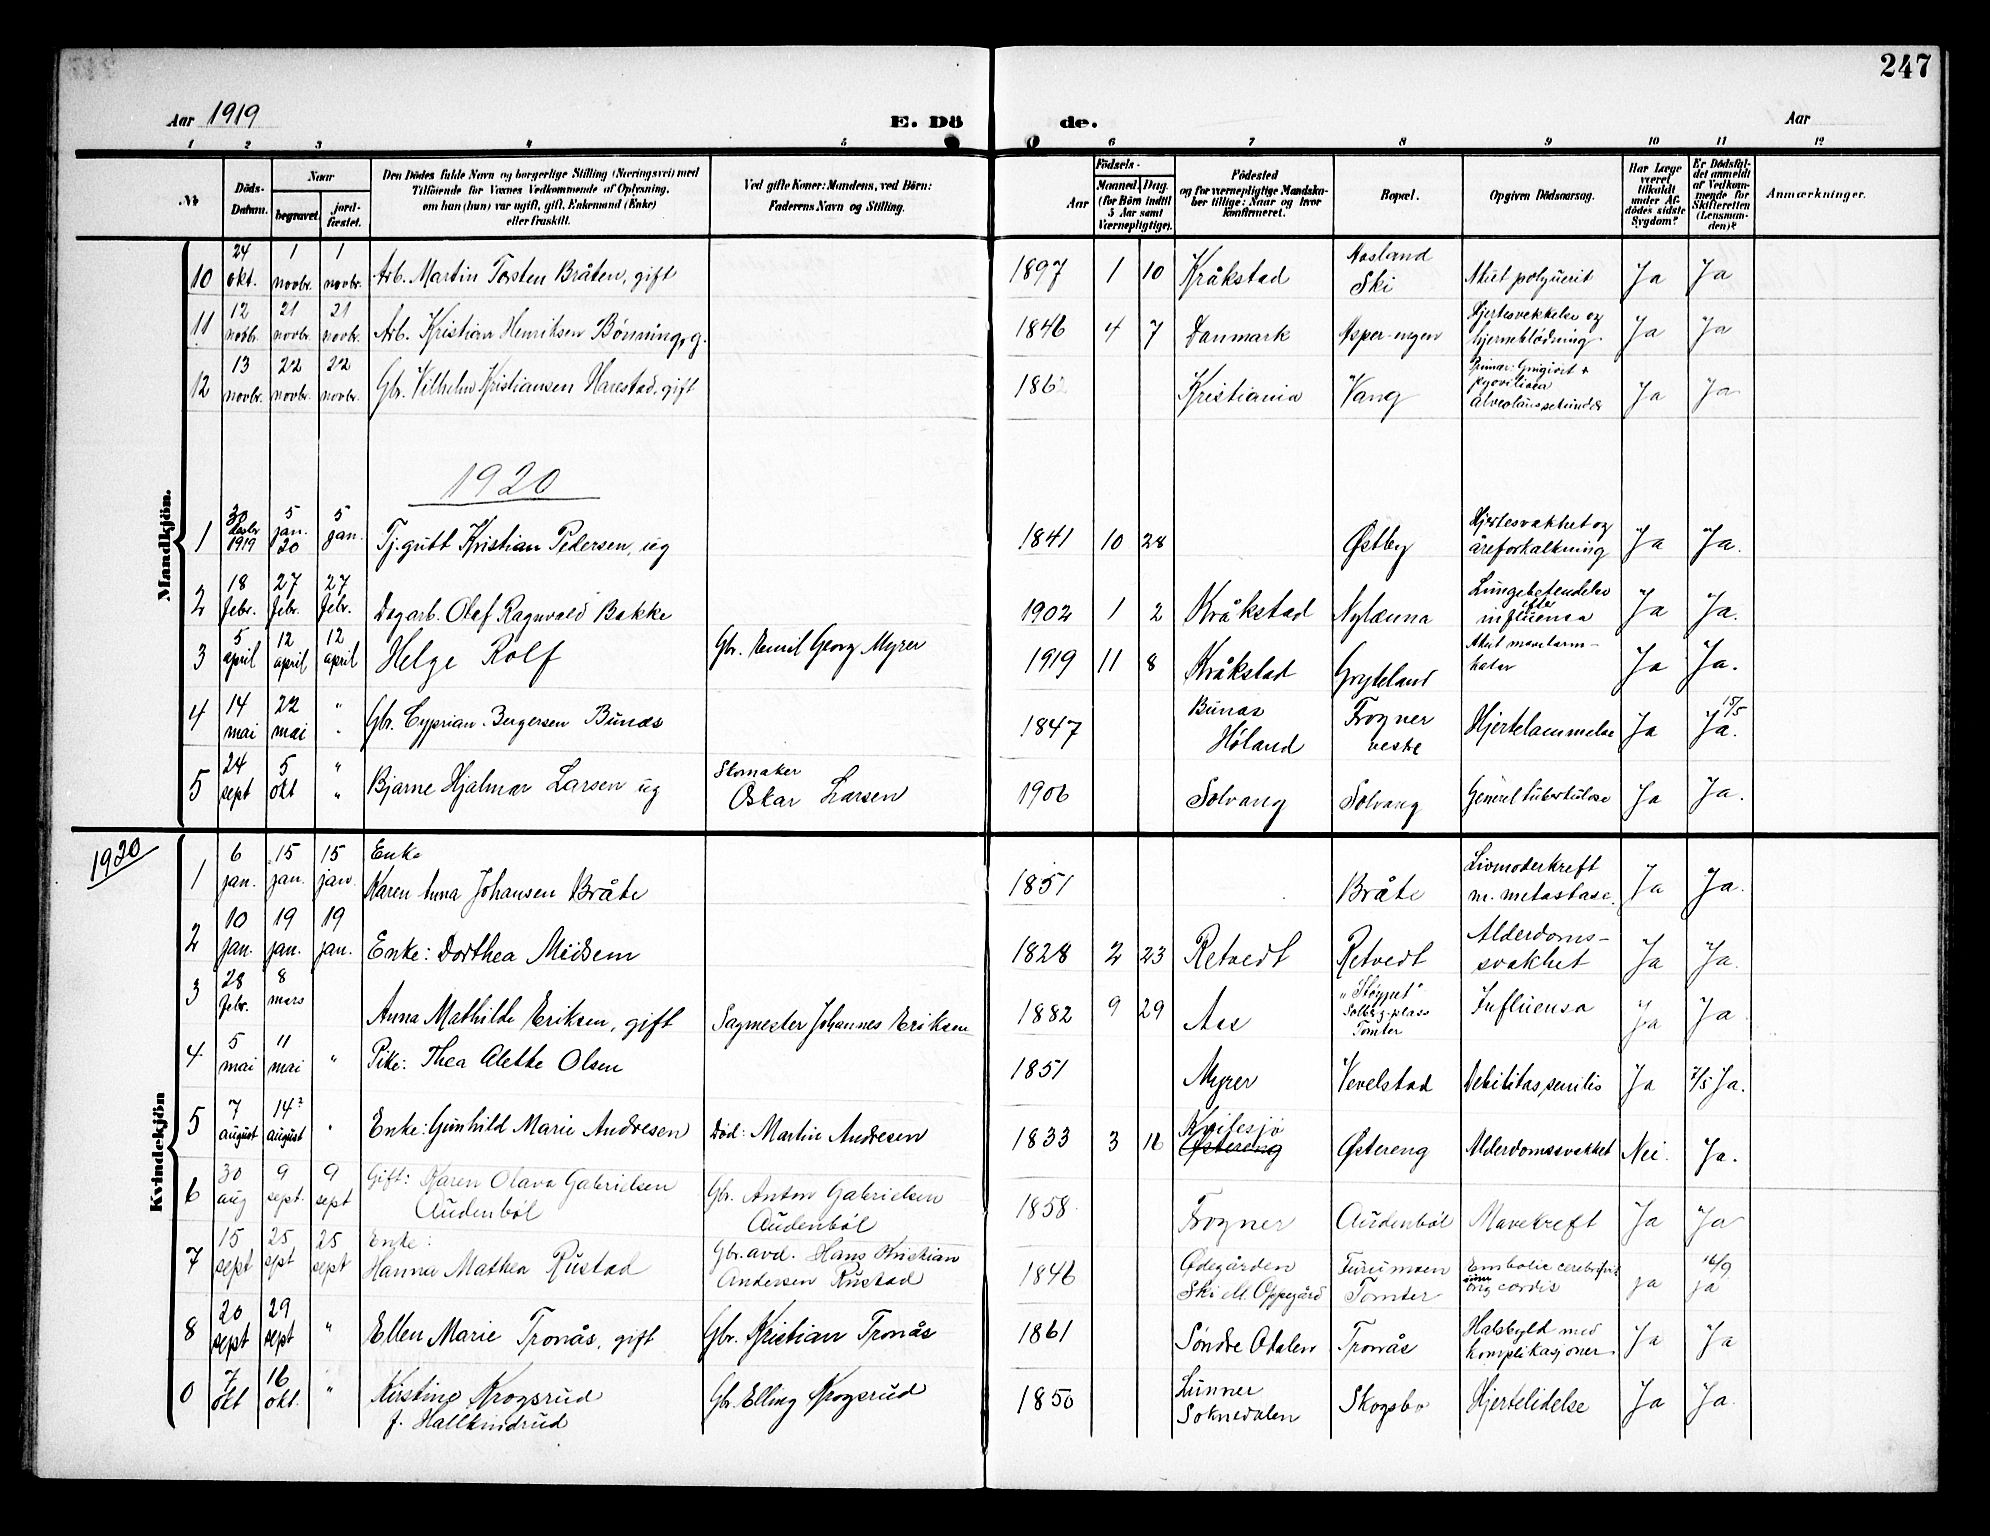 247
Aar 1919
E. Dö
de.
Aar
1 2 3 4 5 6 7 8 9 10 11 12
№
Döds-Datum.
Naar
begravet.
jord-fæstet.
Den Dödes fulde Navn og borgerlige Stilling (Næringsvei) med
Tilföiende for Voxnes Vedkommende af Oplysning,
om han (hun) var ugift, gift, Enkemand (Enke)
eller fraskilt.
Ved gifte Koner: Mandens, ved Börn:
Faderens Navn og Stilling.
Födsels-
Aar
Maaned. Dag.
(for Börn indtil
5 Aar samt
Værnepligtige).
Födested
og for værnepligtige Mandska-
ber tillige: Naar og hvor
konfirmeret.
Bopæl.
Opgiven Dödsaarsag.
Har Læge
været
tilkaldt
under Af-
dödes sidste
Sygdom?
Er Dödsfal-
det anmeldt
af Vedkom-
mende for
Skifteretten
(Lensman-
den)?
Anmærkninger.
Mandkjön.
10 24 okt. 1 novbr. 1 novbr. Arb. Martin Torsten Bråten, gift 1897 1 10 Kråkstad Aasland Ski Akut polyuerit Ja Ja
11 12 novbr. 21 novbr. 21 novbr. Arb. Kristian Henriksen Bönning, g. 1846 4 7 Danmark Asper-engen Hjertesvekkelse og hjerneblödning. Ja Ja
12 13 novbr. 22 novbr. 22 novbr. Gbr. Vilhelm Kristiansen Harestad, gift 186 Kristiania Vang Primær: Gingivit + Ja Ja
1920
1 30 1919 5 jan. 20 5 jan. Tj.gutt Kristian Pedersen, ug 1841 10 28 Østby Hjertesvakhet og åreforkalkning Ja Ja.
2 18 febr. 27 febr. 27 febr. Dagarb. Olaf Ragnvald Bakke 1902 1 2 Kråkstad Nylænna Lungebetendelse efter influensa Ja Ja.
3 5 april 12 april 12 april Helge Rolf Gbr. Emil Georg Myrer 1919 11 8 Kråkstad Gryteland Akut mavetarm-katar Ja Ja.
4 14 mai 22 mai " " Gbr. Cyprian Bergersen Bunæs 1847 Bunæs Høland Frogner vestre Hjertelammelse Ja 15/5 Ja.
5 24 sept 5 okt " " Bjarne Hjalmar Larsen ug Skomaker Oskar Larsen 1906 Solvang Solvang Generel tuberkulose Ja Ja.
1920
Kvindekjön
1 6 jan. 15 jan. 15 jan. Enke Karen Anna Johansen Bråte 1851 Bråte Livmoderkreft m. metastase. Ja Ja.
2 10 jan. 19 jan. 19 jan. Enke: Dorthea Midsem 1828 2 23 Retvedt Retvedt Alderdoms-svakhet Ja Ja.
3 28 febr. 8 mars Anna Mathilde Eriksen, gift Sagmester Johannes Eriksen 1882 9 29 Aas "Støpet" Solberg-plass Tomter Influensa Ja Ja.
4 5 mai 11 mai " Pike: Thea Alette Olsen 1851 Myrer Vevelstad Debilitas senilis Ja 7/5 Ja.
5 7 august 14 august " Enke: Gunhild Marie Andresen Död: Martin Andresen 1833 3 Østereng Østereng Alderdomssvakhet Nei. Ja.
6 30 aug 9 sept. 9 sept Gift: Karen Olava Gabrielsen Audenböl Gbr. Anton Gabrielsen Audenböl 1858 Frogner Audenböl Mavekreft Ja Ja
7 15 sept 25 sept 25 sept Enke: Hanna Mathea Rustad Gbr. avd. Hans Kristian Andersen Rustad 1846 Ødegården Ski M. Oppegård Furumoen Tomter Embolie cerebri cordis ja 16/9 ja
8 20 sept 29 sept " Ellen Marie Tronås, gift Gbr. Kristian Tronås 1861 Søndre Odalen Tronås Halsbyld med komplikasjoner Ja Ja
0 7 okt 16 okt. " Kirstine Krogsrud f. Hallkindrud Gbr. Elling Krogsrud 1850 Lunner Soknedalen Skogsbo Hjertelidelse Ja Ja.